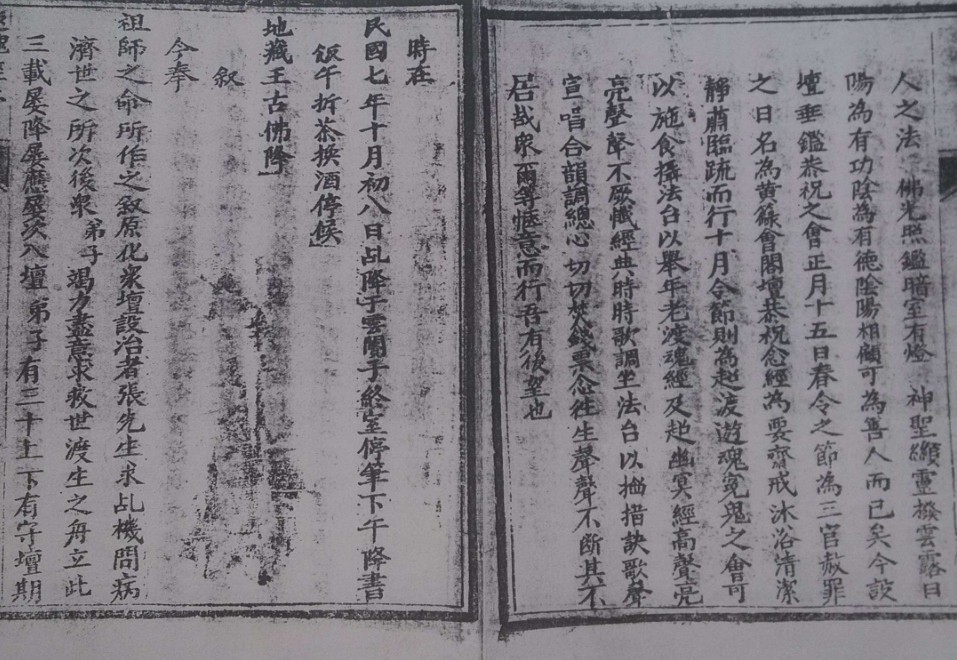 人之法 佛光照鑑暗室有燈 神聖顯靈撥雲露日
陽為有功陰為有德陰陽相願可為善人而已矣今設
壇垂鑑恭祝之會正月十五日春令之節為三官赦罪
之日名為黃籙會閤壇恭祝念經為要齋戒沐浴清潔
靜肅臨疏而行十月令節則為超渡遊魂冤鬼之會可
以施食攝法台以舉年老渡魂經及起幽冥經高聲亮
亮聲聲不厭懺經典時時歌調坐法台以搯指訣歌聲
宣唱合韻調總心切切焚錢票念往生聲聲不斷其不
居哉眾爾等愜意而行吾有後望也
時在
民國七年十月初八日乩降于雲閣子終室停筆下午降書
飯午折茶換酒停候
地藏王古佛降
叙
今奉
祖師之命所作之叙原化衆壇設治者張先生求乩機問病
濟世之所次後衆弟子竭力盡意求救世渡生之舟立此
三載屢降屢應屢次入壇弟子有三十上下有守壇期